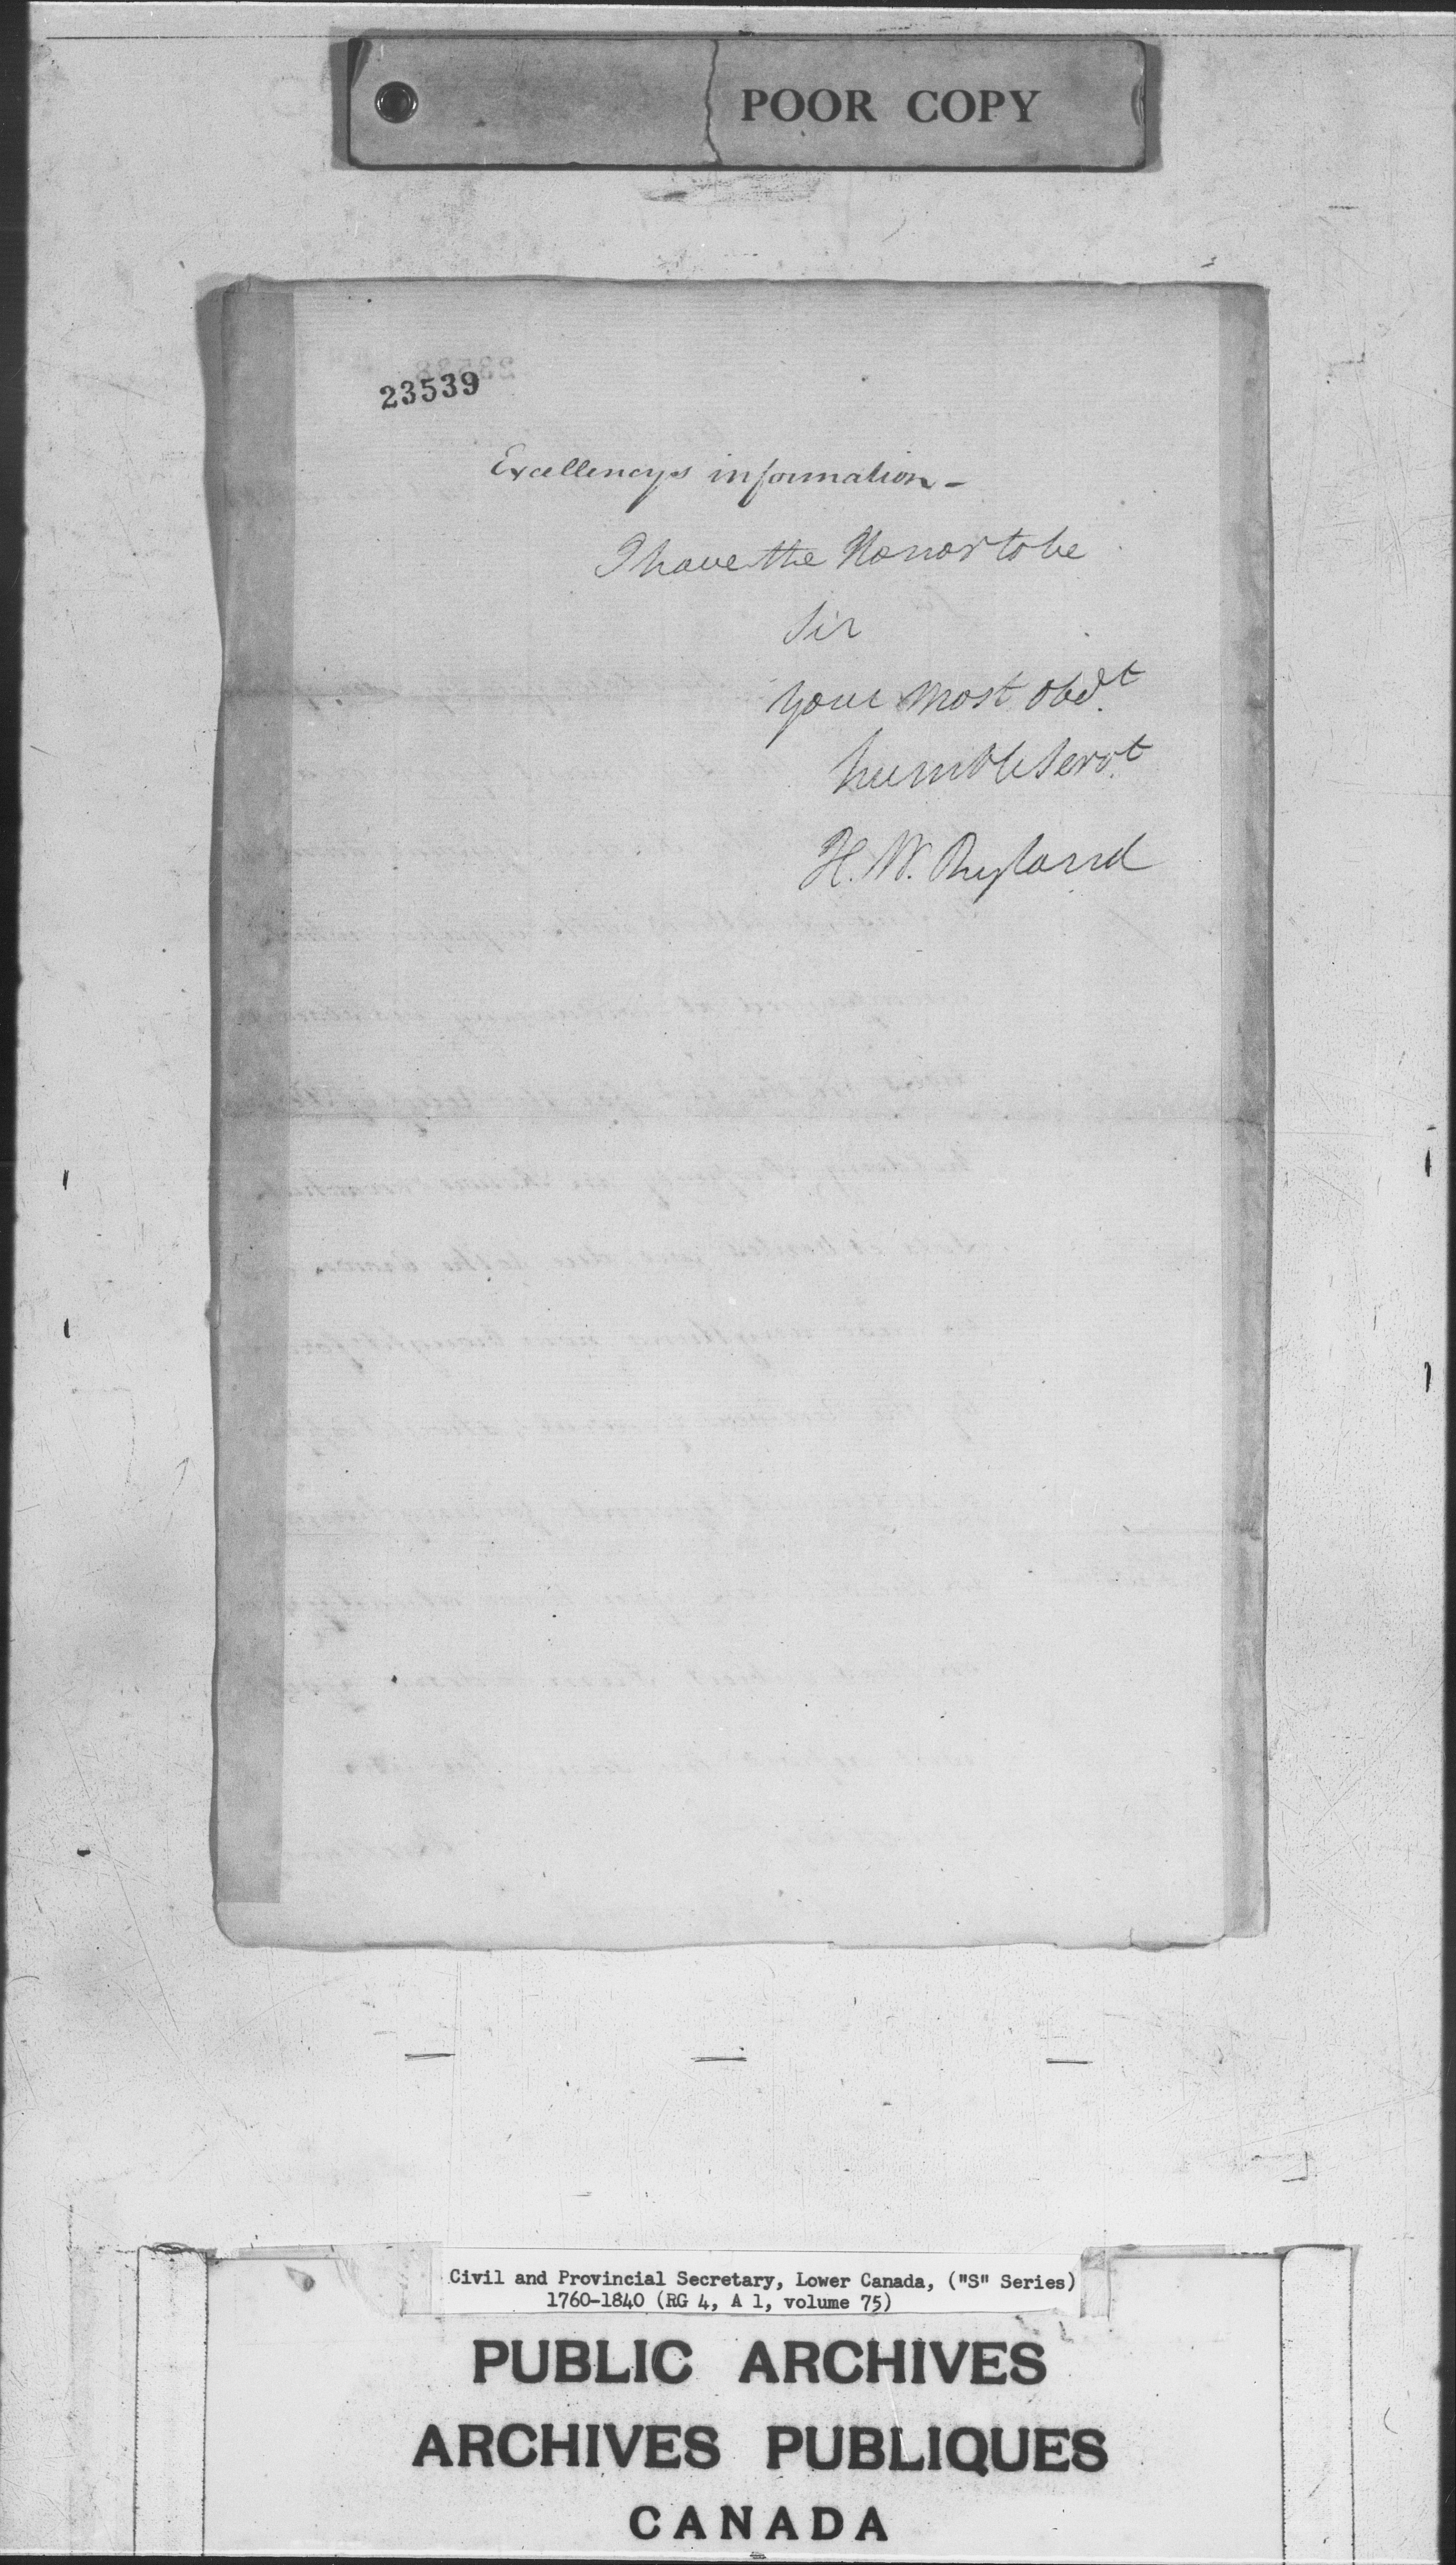 POOR COPY
23539
Excellencys information -
I have the Honor to be
Sir
your most obd.t
humble Serv.t
H. W. Ryland
Civil and Provincial Secretary, Lower Canada, ("S" Series)
1760-1840 (RG 4, A 1, volume 75)
PUBLIC ARCHIVES
ARCHIVES PUBLIQUES
CANADA